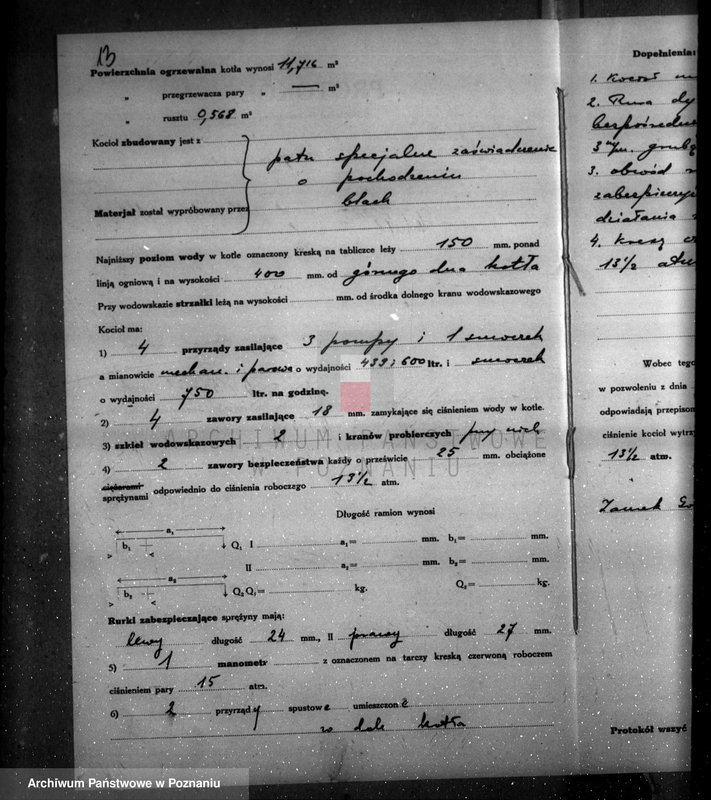 13
Powierzchnia ogrzewalna kotła wynosi 11,716 m²
„ przegrzewacza pary „ — m²
„ rusztu 0,568 m²
Kocioł zbudowany jest z
patrz specjalne zaświadczenie
o pochodzeniu
blach
Materjał został wypróbowany przez
Najniższy poziom wody w kotle oznaczony kreską na tabliczce leży 150 mm. ponad
linją ogniową i na wysokości 400 mm. od górnego dna kotła
Przy wodowskazie strzałki leżą na wysokości mm. od środka dolnego kranu wodowskazowego
Kocioł ma:
1) 4 przyrządy zasilające 3 pompy i 1 smoczek
a mianowicie mechan. i parowe o wydajności 439 i 600 ltr. i smoczek
o wydajności 750 ltr. na godzinę.
2) 4 zawory zasilające 18 mm. zamykające się ciśnieniem wody w kotle.
3) szkieł wodowskazowych 2 i kranów probierczych przy nich
4) 2 zawory bezpieczeństwa każdy o prześwicie 25 mm. obciążone
ciężarami
sprężynami odpowiednio do ciśnienia roboczego 13 1/2 atm.
Długość ramion wynosi
a₁
b₁
Q₁ I a₁= mm. b₁= mm.
II a₂= mm. b₂= mm.
a₂
b₂
Q₂ Q₁= kg. Q₂= kg.
Rurki zabezpieczające sprężyny mają:
lewy długość 24 mm., II prawy długość 27 mm.
5) 1 manometr z oznaczonem na tarczy kreską czerwoną roboczem
ciśnieniem pary 15 atm.
6) 2 przyrządy spustowe umieszczone
w dole kotła
Dopełnienia:
1. Kocioł
2. Rura
3 m/m.
3. obwód
działania
4. 
13 1/2 atm
Wobec tego
w pozwoleniu z dnia
odpowiadają przepisom
ciśnienie kocioł wytrz
13 1/2 atm.
Protokół wszyć
ARCHIWUM PAŃSTWOWE
W POZNANIU
Archiwum Państwowe w Poznaniu